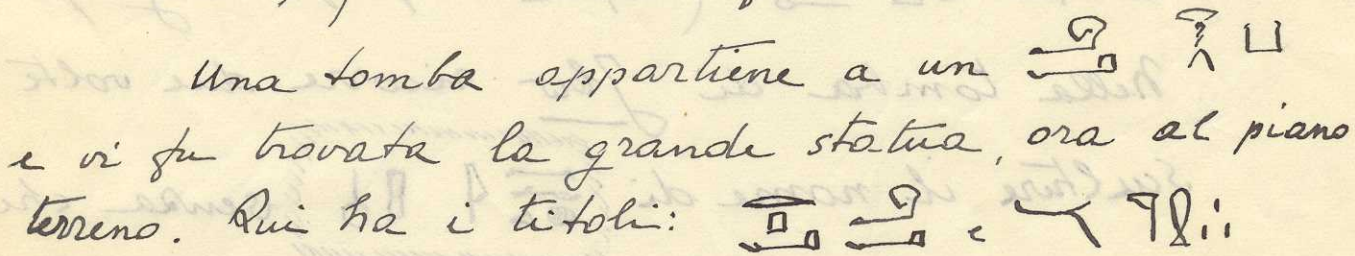 Una tomba appartiene a un
e vi fu trovata la grande statua, ora al piano
terreno. Qui ha i titoli: e